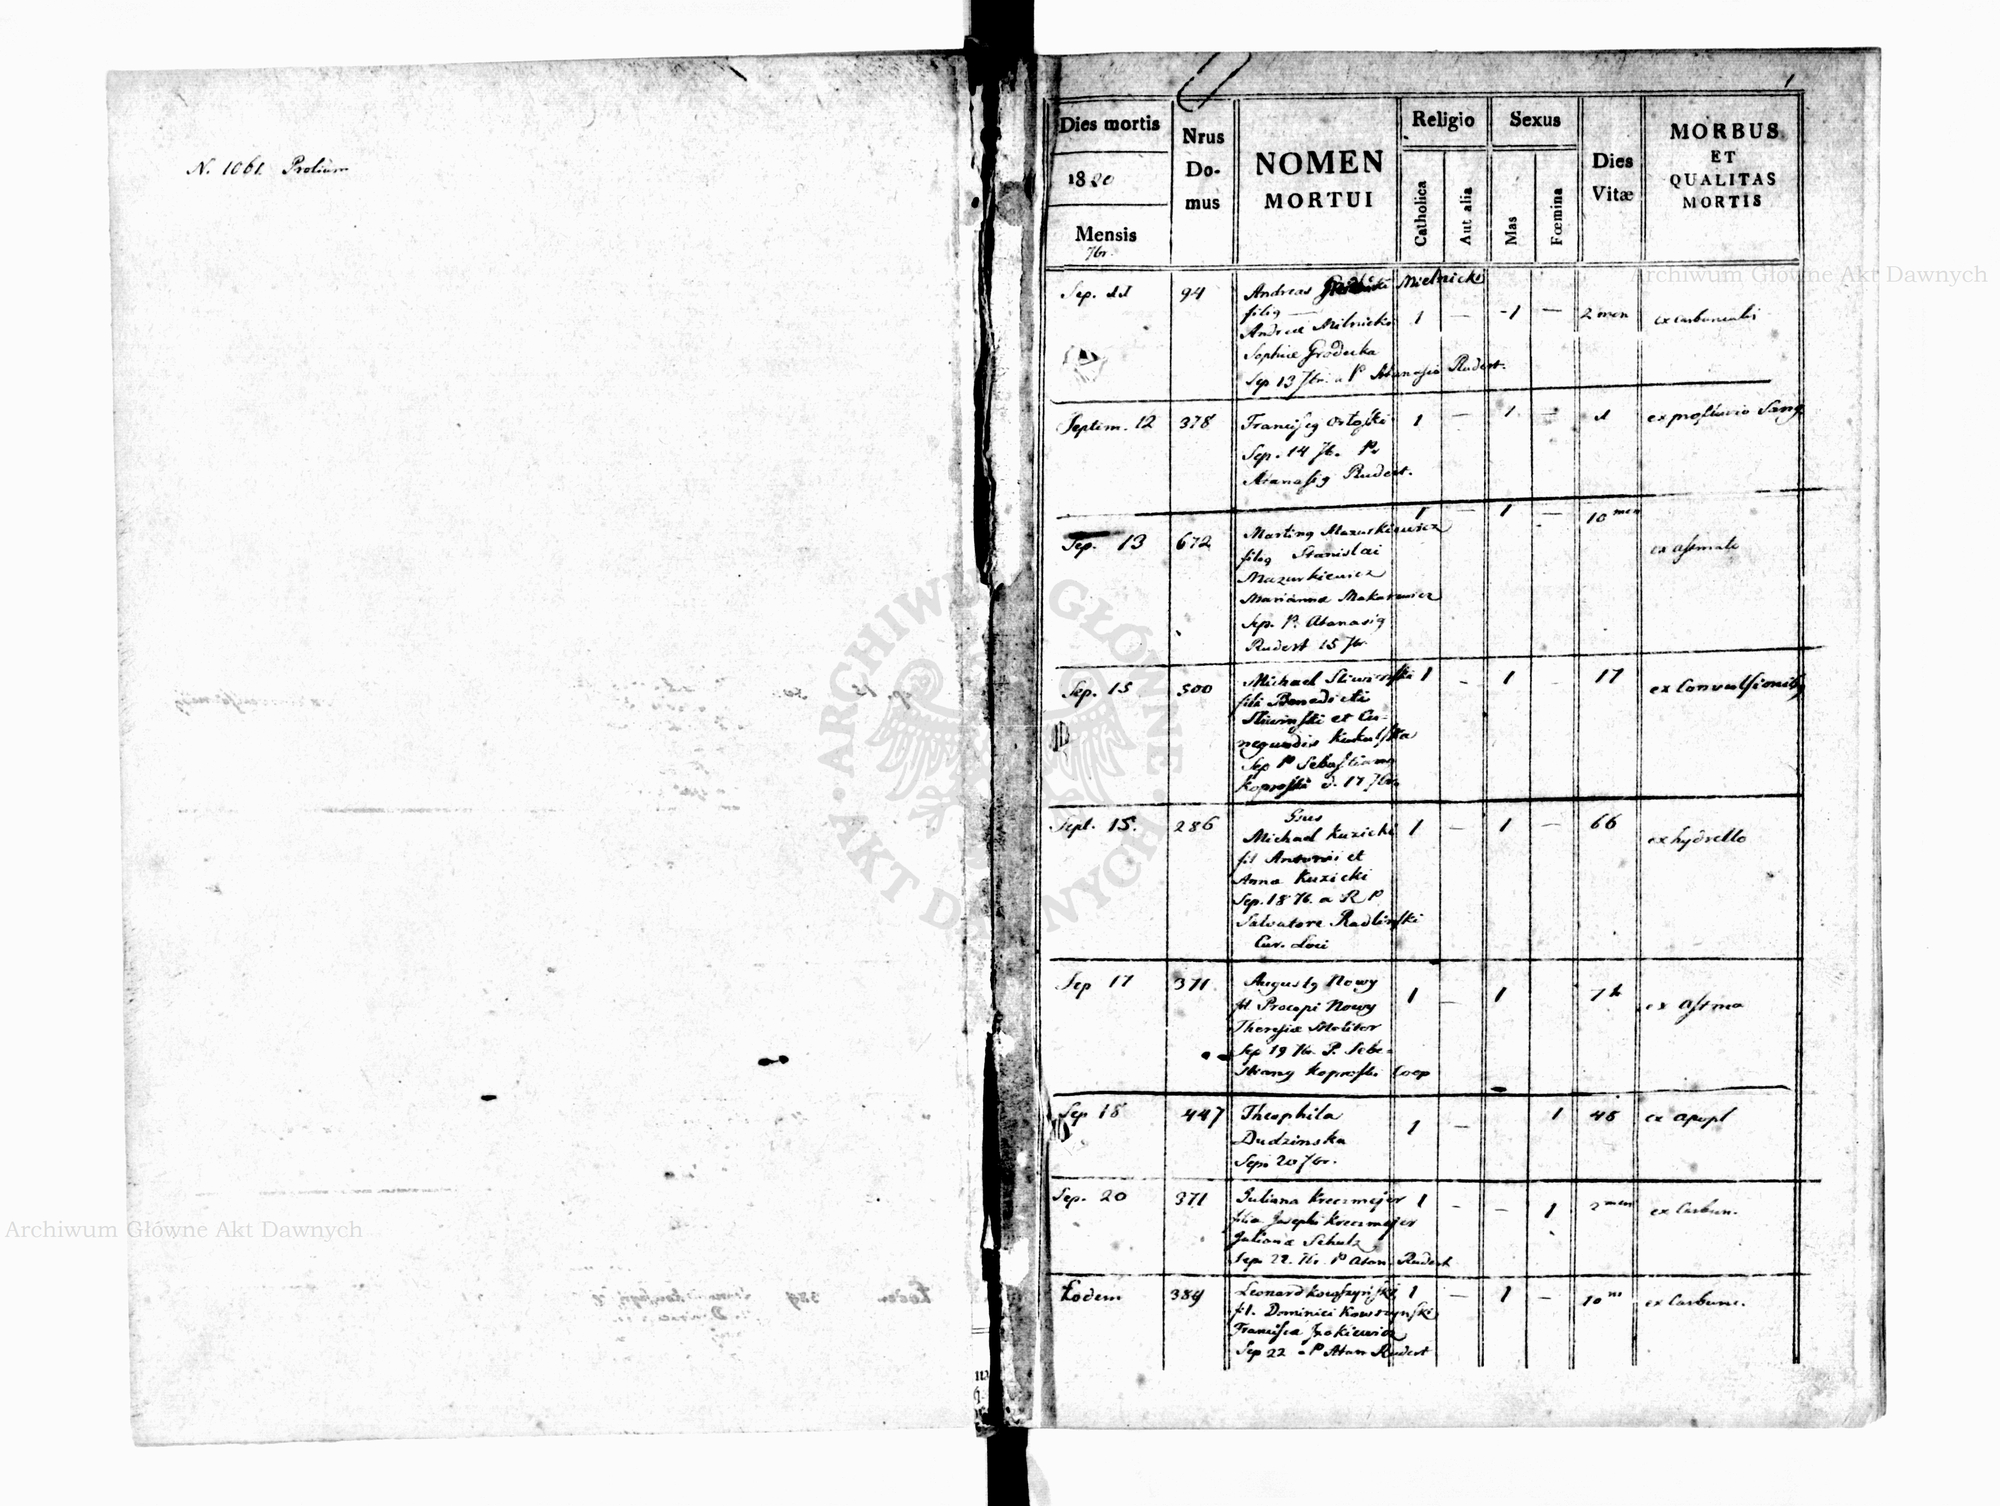 N. 1061. Prolium
1
Dies mortis
1820
Mensis
7br.
Nrus
Do-
mus
NOMEN
MORTUI
Religio
Catholica
Aut alia
Sexus
Mas
Fœmina
Dies
Vitæ
MORBUS
ET
QUALITAS
MORTIS
Sep. 11 94 Andreas Mielnicki
Andreæ Milnicki 1 — 1 — 2 men
Sophiæ Grodecka
Sep 13 7br. a P Atanasio Rudert.
Septem. 12 378 1 — 1 — 1 ex profluvio Sang
Sep. 14 7b. P.
Rudert.
Sep. 13 672 Mazurkiewicz 1 — 1 — 10 men
Stanislai ex asmate
Mazurkiewicz
Marianna Makarewicz
Sep. P. Atanasig
Rudert 15 7br.
Sep. 15 500 Michael 1 — 1 — 17 ex Convulsionibg
fili Benedicti
Sliwinski et Cu-
negundis Kukulska
Sep P Sebastiano
Koproski d. 17 7br.
Sept. 15. 286
Michael Kuzicki 1 — 1 — 66 ex hydrello
fil Antonii et
Anna Kuzicki
Sep. 18 7b. a R P
Salvatore Radlinski
Cur. Loci
Sep 17 371 Augustg Nowy 1 — 1 ex astma
fil Procopi Nowy
Theresiæ Molitor
Sep 19 7br. P. Seba-
stiany Koproski Coop
Sep 18 447 Theophila 1 — 1 48 ex apopl
Dudzinska
Sep. 20 7br.
Sep. 20 371 Juliana Kreczmejer 1 — — 1 ex Carbun.
filia Josephi Kreczmejer
Juliana Schulz
Sep. 22. 7br. P Atan. Rudert
Eodem 389 Leonard 1 — 1 — 10 m ex Carbunc.
fil. Dominici Kowszynski
Sep 22 a P Atan Rudert
ARCHIWUM GŁÓWNE • AKT DAWNYCH •
Archiwum Główne Akt Dawnych
Archiwum Główne Akt Dawnych